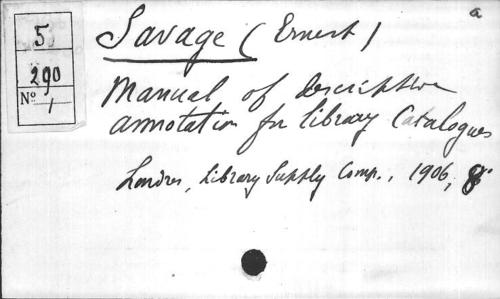 a
5
290
Nº 1
Savage (Ernest)
Manual of descriptive
annotation for library Catalogues
Londres, Library Supply Comp., 1906, 8º